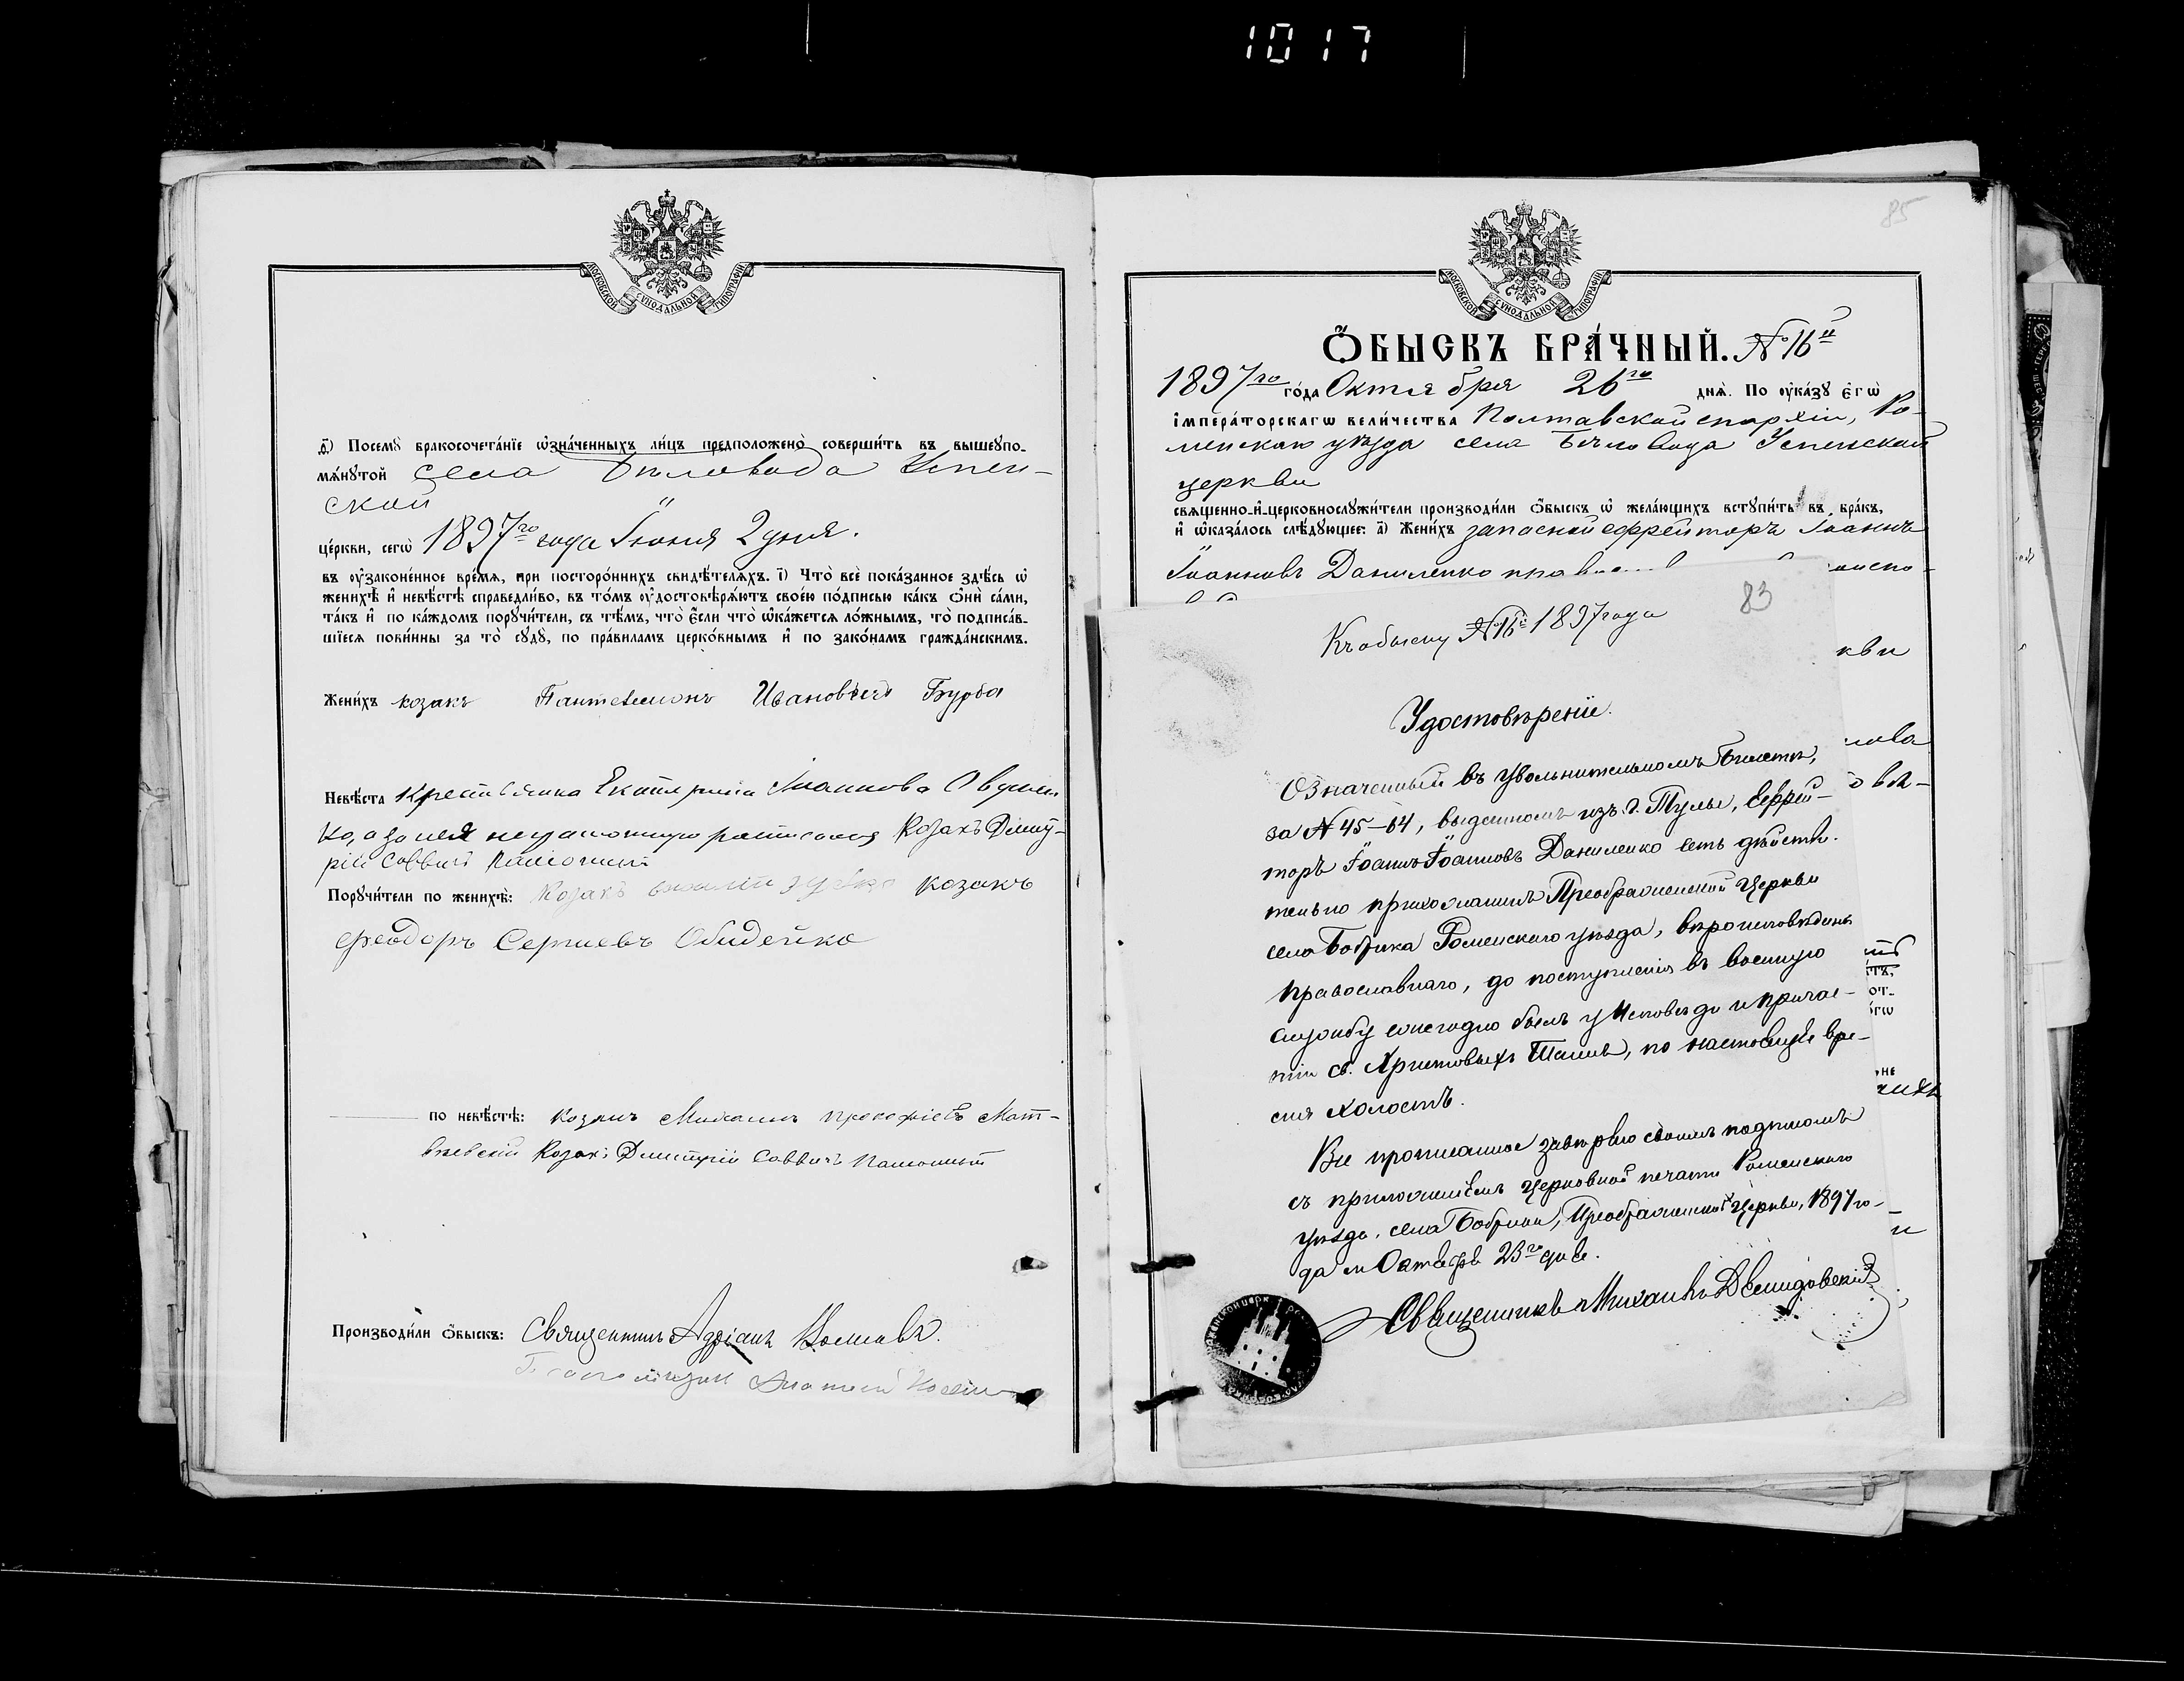 1017
МОСКОВСКОЙ СѴНОДАЛЬНОЙ ТИПОГРАФІИ
д҃) Посемꙋ̀ бракосочета́нїе ѡ҆зна́ченныхъ ли́цъ предположено̀ соверши́ть въ вышеꙋпо-
мѧ́нꙋтой села Бѣловода Успен-
ской
це́ркви, сегѡ̀ 1897го года Іюня 2 дня.
въ ᲂу҆зако́ненное вре́мѧ, при посторо́ннихъ свидѣ́телѧхъ. і҃) Что̀ всѐ пока́занное здѣ́сь ѡ҆
женихѣ̀ и҆ невѣ́стѣ справедли́во, въ то́мъ ᲂу҆достовѣрѧ́ютъ свое́ю по́дписью ка́къ ѻ҆нѝ са́ми,
та́къ и҆ по ка́ждомъ порꙋчи́тели, съ тѣ́мъ, что̀ є҆́сли что̀ ѡ҆ка́жетсѧ ло́жнымъ, то̀ подписа́в-
шїесѧ пови́нны за то̀ сꙋдꙋ̀, по пра́виламъ церко́внымъ и҆ по зако́намъ гражда́нскимъ.
Жени́хъ козакъ Пантелеимонъ Ивановичъ Бурба
Невѣ́ста крестьянка Екатерина Іоаннова
ко, а за нея неграмотную росписался Козакъ Дмит-
рій Саввичъ
Порꙋчи́тели по женихѣ̀: Козакъ козакъ
Феодоръ Сергиевъ Обидейко
по невѣ́стѣ: козакъ Михаилъ Прокофіевъ Мат-
вѣевскій Козакъ Дмитрій Саввичъ
Производи́ли ѻ҆́быскъ: Священникъ Адріанъ
85
МОСКОВСКОЙ СѴНОДАЛЬНОЙ ТИПОГРАФІИ
Ѻ҆́БЫСКЪ БРА́ЧНЫЙ. № 16й
1897го го́да Октября 26го днѧ̀. По ᲂу҆ка́зꙋ є҆гѡ̀
і҆мпера́торскагѡ вели́чества Полтавской епархіи, Ро-
менскаго уѣзда села Бѣловода Успенской
церкви
свѧще́нно-и҆-церковнослꙋжи́тели производи́ли ѻ҆́быскъ ѡ҆ жела́ющихъ встꙋпи́ть въ бра́къ,
и҆ ѡ҆каза́лось слѣ́дꙋющее: а҃) Жени́хъ запасной ефрейторъ Іоаннъ
Іоанновъ Даниленко
83
Къ обыску № 16й 1897 года
Удостовѣреніе.
Означенный въ увольнительномъ билетѣ,
за № 45–64, выданномъ изъ г. Тулы, Ефрей-
торъ Іоаннъ Іоанновъ Даниленко есть дѣйстви-
тельно прихожанинъ Преображенской Церкви
села Бобрика Роменскаго уѣзда, вѣроисповѣданія
православнаго, до поступленія въ военную
службу ежегодно былъ у Исповѣди и причас-
тіи св. Христовыхъ Таинъ, по настоящее вре-
мя холостъ.
Все прописанное завѣряю своимъ подписомъ
съ приложеніемъ церковной печати Роменскаго
уѣзда, села Бобрика, Преображенской Церкви, 1897 го-
да м. Октября 23го дня.
Священникъ Михаилъ Демидовскій